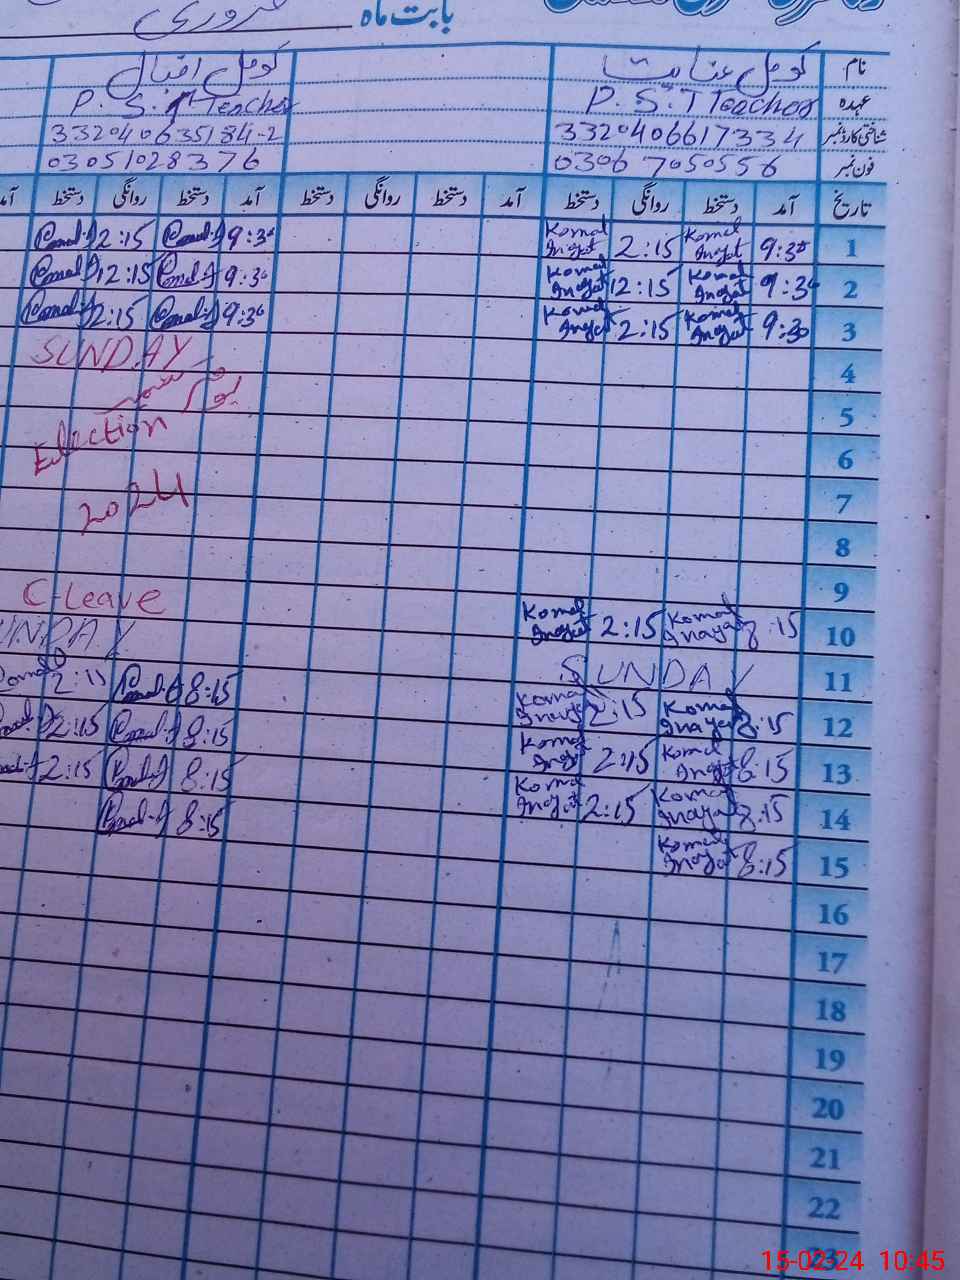 بابت ماہ فروری
نام کومل عنایت کومل اقبال
عہدہ P.S.T Teacher P.S.T Teacher
شناختی کارڈ نمبر 3320406617334 332040635184-2
فون نمبر 0306 7050556 03051028376
تاریخ آمد دستخط روانگی دستخط آمد دستخط روانگی دستخط آمد دستخط روانگی دستخط آمد
1 9:30 Komal Inayat 2:15 Komal Inayat 9:30 Komal-I 2:15 Komal-I
2 9:30 Komal Inayat 12:15 Komal Inayat 9:30 Komal-I 12:15 Komal-I
3 9:30 Komal Inayat 2:15 Komal Inayat 9:30 Komal-I 2:15 Komal-I
4 SUNDAY
5 یوم کشمیر
6 Election
7 2024
8
9
10 8:15 Komal Inayat 2:15 Komal Inayat C-Leave
11 SUNDAY UNDAY
12 8:15 Komal Inayat 2:15 Komal Inayat 8:15 Komal-I 2:15
13 8:15 Komal Inayat 2:15 Komal Inayat 8:15 Komal-I 2:15
14 8:15 Komal Inayat 2:15 Komal Inayat 8:15 Komal-I 2:15
15 8:15 Komal Inayat 8:15 Komal-I
16
17
18
19
20
21
22
23
15-02-24 10:45